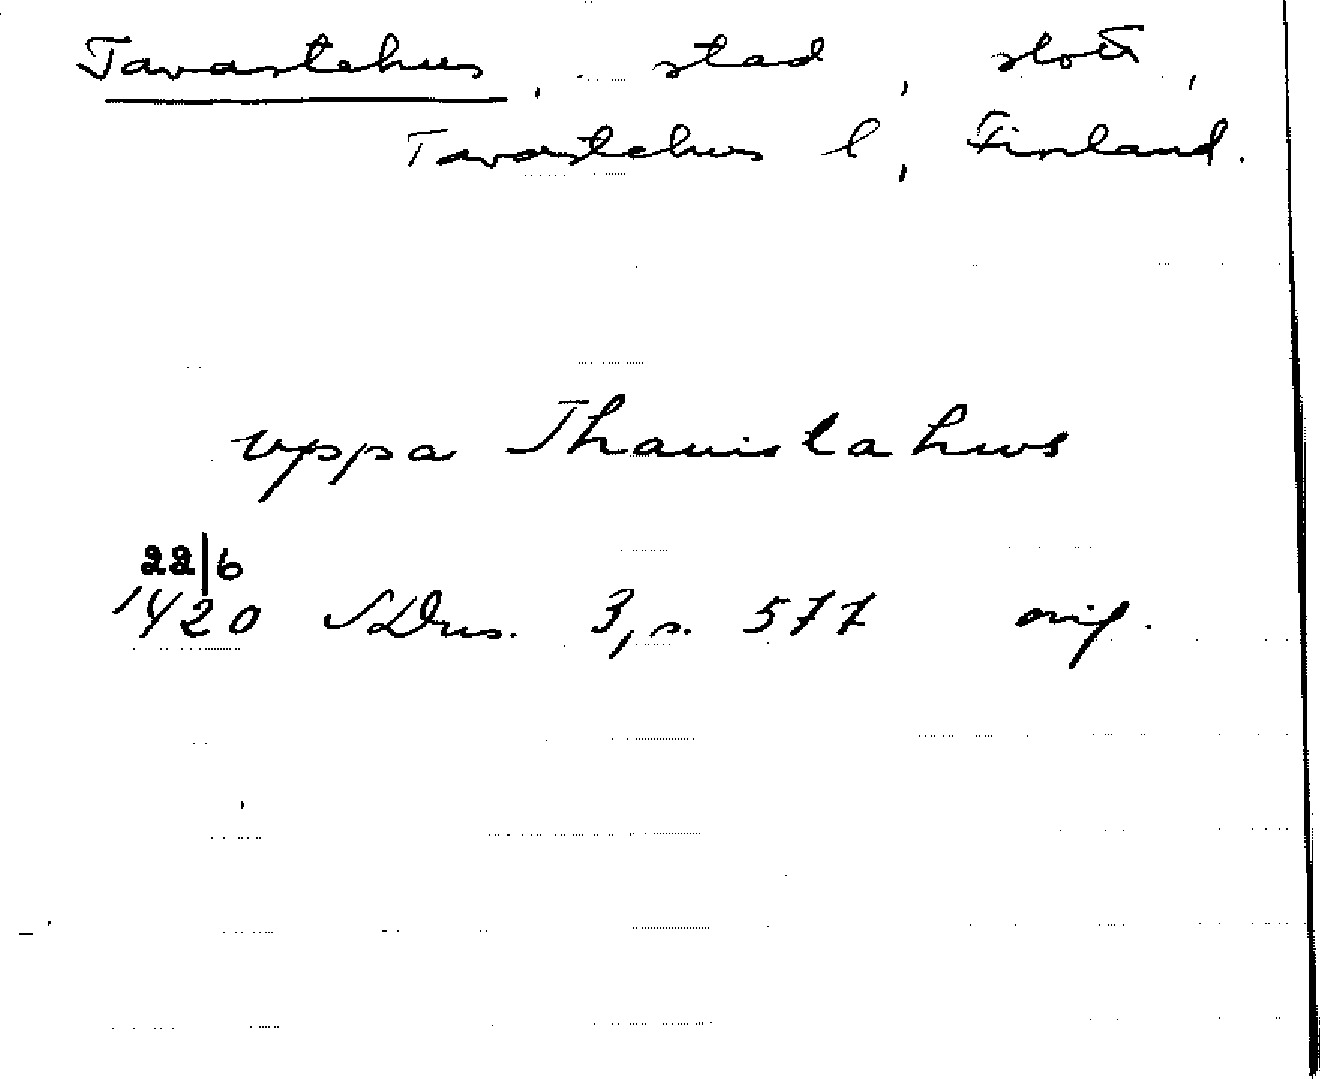 Tavastehus, stad, slott,
Tavastehus l, Finland.
vppa Thauistahws
22/6
1420 SDns. 3, s. 577 orig.